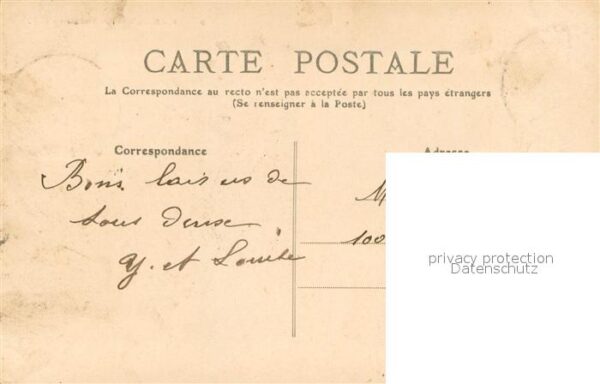 CARTE POSTALE
La Correspondance au recto n'est pas acceptée par tous les pays étrangers
(Se renseigner à la Poste)
Correspondance
Adresse
Bons baisers de
tous deux
Y. et Louise
M
100
privacy protection
Datenschutz